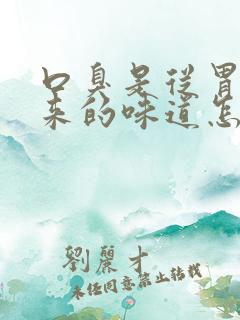 口臭是從胃
来的味道怎
劉麗才
未经同意禁止转载